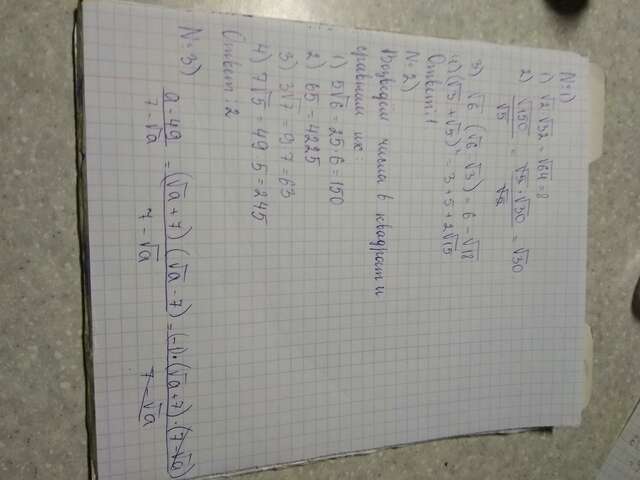 N:1)
1) √2 · √32 = √64 = 8
2) √150/√5 = √5 · √30/√5 = √30
3) √6 (√6 - √3) = 6 - √18
4) (√3 + √5)² = 3 + 5 + 2√15
Ответ: 1
N:2)
Возведём числа в квадрат и
сравним их
1) 5√6 = 25 · 6 = 150
2) 65 = 4225
3) 3√7 = 9 · 7 = 63
4) 7√5 = 49 · 5 = 245
Ответ: 2
N:3)
a - 49/7 - √a = (√a + 7)(√a - 7)/7 - √a = (-1) · (√a + 7) · (7 - √a)/7 - √a